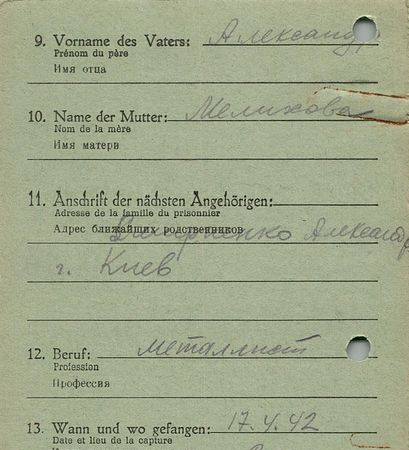 9. Vorname des Vaters: Александр
Prénom du père
Имя отца
10. Name der Mutter: Мелихова
Nom de la mère
Имя матери
11. Anschrift der nächsten Angehörigen:
Adresse de la famille du prisonnier
Адрес ближайших родственников
Александр
г. Киев
12. Beruf: металлист
Profession
Профессия
13. Wann und wo gefangen: 17.4.42
Date et lieu de la capture